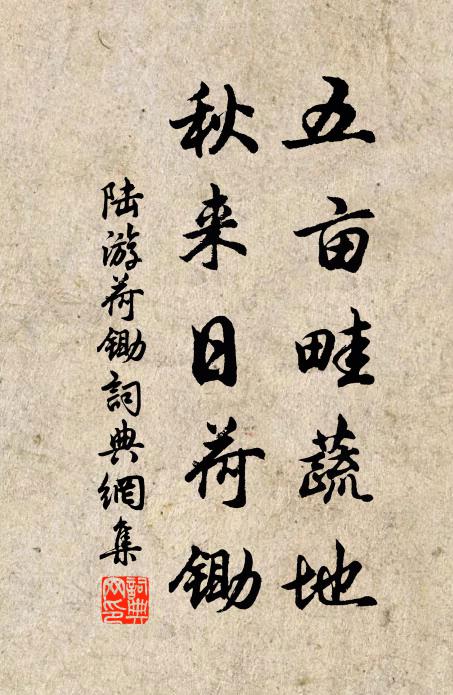 五亩畦蔬地
秋来日荷锄
陆游荷锄詞典網集
詞典网印